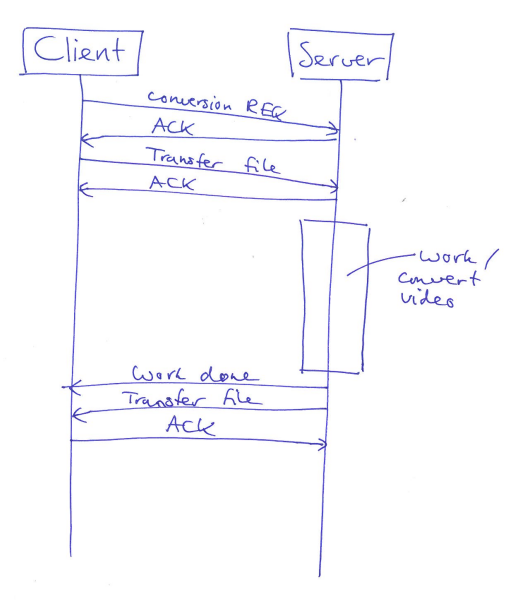 Client
Server
Conversion REQ
ACK
Transfer file
ACK
Work /
convert
video
Work done
Transfer file
ACK